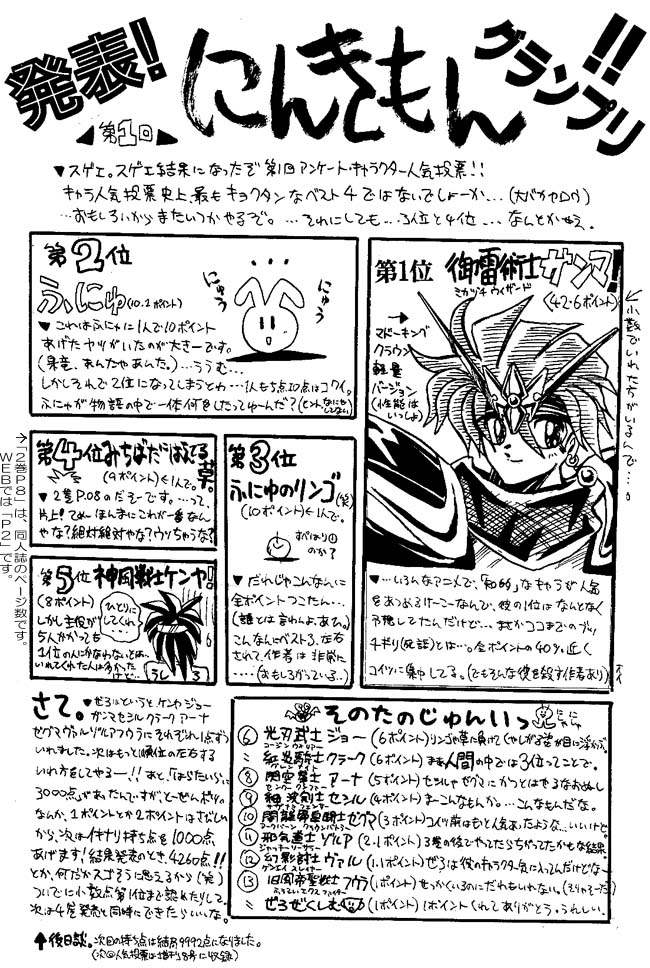 発表!
にんきもん
グランプリ!!
第1回
▼スゲエ。スゲエ結果になったぞ第1回アンケート・キャラクター人気投票!!
キャラ人気投票史上、最もキョクタンなベスト4ではないでしょーか…(大バカヤロウ)
…おもしろいからまたいつかやるぞ。…それにしても…3位と4位…なんとかせえ。
第1位 御雷術士ガンマ!
ミカヅチ ウィザード
(42.6ポイント)
→
マドーキング
クラウン
軽量
バージョン
(性能は
いっしょ)
▼…いろんなアニメで、「知的」なキャラが人気
をあつめるけーこーなんで、彼の1位はなんとなく
予想してたんだけど…まさかココまでのブッ
チギリ(死語)とは…。全ポイントの40%近く
コイツに集中してる。(でもそんな彼を殺す作者あり)
第2位
ふにゅ(10.2ポイント)
・・・
にゅう
にゅう
▼これはふにゅに1人で10ポイント
あげたヤツがいたのが大きーです。
しかしそれで2位になってしまうとわ…1人もち点10点はコワイ。
ふにゅが物語の中で一体何をしたってゆーんだ?
第3位
ふにゅのリンゴ(笑)
(10ポイント)←1人で。
▼だれじゃこんなんに
全ポイントつこたん…
(誰とは言わんよ、あえて。)
こんなんにベスト3、左右
されて、作者は非常に
……(おもしろがっている。)
第4位みちばたにはえてる草。
(9ポイント)←1人で。
▼2巻P.08のだそーです。…って、
片上!てめーほんまにこれが一番なん
やな?絶対絶対やな?ウソちゃうな?
第5位 神風戦士ケンヤ!
(8ポイント)
しかし主役が
5人かかっても
1位の人にかなわないとは…
いれてくれた人は多かった
けど…
ひとりに
してくれ…
うしろ
←小数でいれたヤツがいるんで…。
→「2巻P8」は、同人誌のページ数です。
WEBでは「P2」です。
さて。▼ぜろはというと ケンヤ ジョー
ガンマ セシル クラーク アーナ
ゼグマ ヴァル ゾルア フウラにそれぞれ1点ずつ
いれました。次はもっと順位の左右する
いれ方をしてやるー!!あと、「はらたいらに
3000点」があったんですが、とーぜんボツ。
なんか、1ポイントとか2ポイントはさびしい
から、次はイキナリ持ち点を1000点
あげます!結果発表のとき、4260点!!
とか、何だかスゴそうに思えるから(笑)
ついでに小数点第1位まで認めたりして。
次は4巻発売と同時にできたらいいな。
そのたのじゅんいっ
にゃにゃ
⑥ 光刃武士ジョー(6ポイント)リンゴや草に負けてくやしがる姿が目に浮かぶ。
〃 紅炎騎士クラーク(6ポイント)まぁ人間の中では3位ってことで。
⑧ 閃空拳士アーナ(5ポイント)セシルやゼグマにかつとはやるなおぬし
⑨ 細波剣士セシル(4ポイント)まーこんなもんか。…こんなもんだな。
⑩ 闇龍帝皇闘士ゼグマ(3ポイント)コイツ前はもと人気あったような…いいけど。
⑪ 邪気道士ゾルア(2.1ポイント)3巻の後でやったらちがってたかもな結果。
⑫ 幻影討士ヴァル(1.1ポイント)ぜろは彼のキャラクター気に入ってんだけどなー
⑬ 旧風帝聖戦士フウラ(1ポイント)せっかくいるのにだれもいれない。(そりゃそーだ)
〃 ぜろぜくしむ(1ポイント)1ポイントくれてありがとう。うれしい。
↑後日談。次回の持ち点は結局9992点になりました。
(次回人気投票は増刊8号に収録)